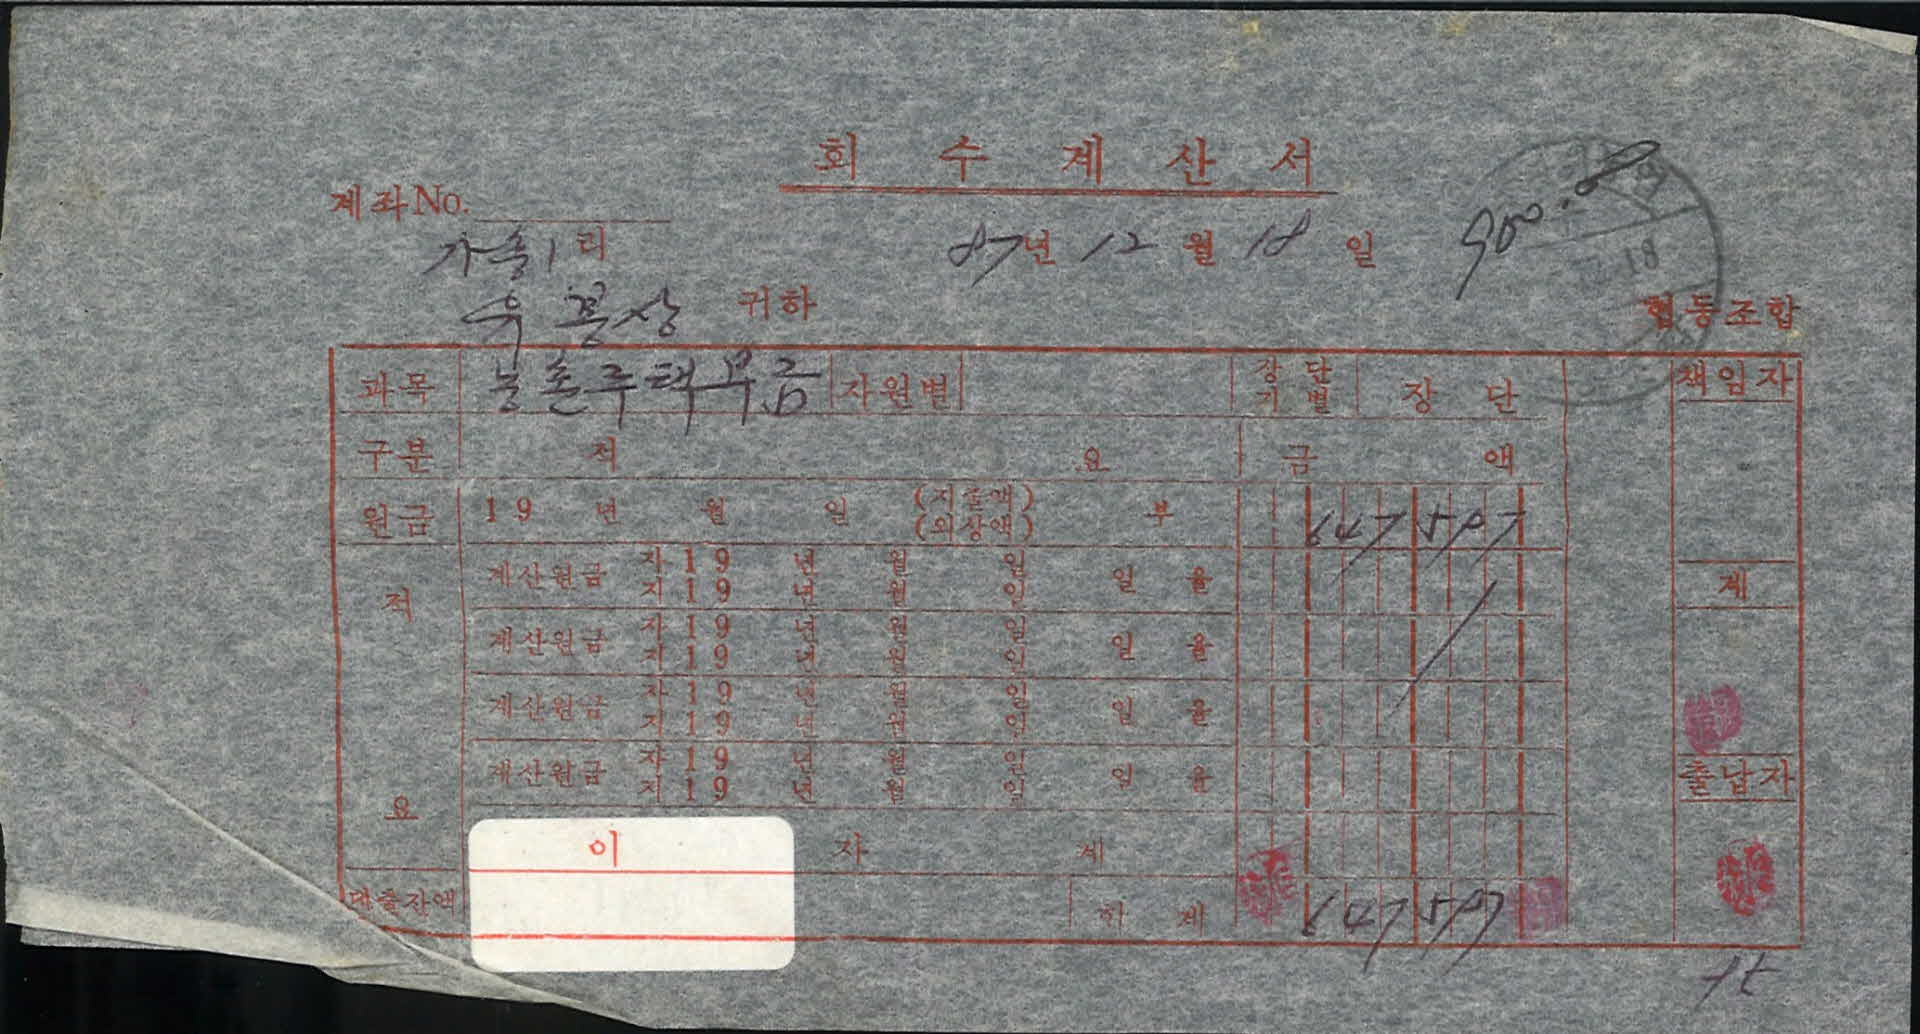 회 수 계 산 서
계좌No.
87년 12 월 18 일
가송1 리
귀하
협동조합
과목 농촌주택부금 자원별 장단기별 장 단 책임자
구분 적 요 금 액
원금 19 년 월 일 (지출액) (외상액) 부 647 597
계산원금 자19 년 월 일 일 율
지19 년 월 일
계
적
계산원금 자19 년 월 일 일 율
지19 년 월 일
계산원금 자19 년 월 일 일 율
지19 년 월 일
계산원금 자19 년 월 일 일 율
지19 년 월 일
출납자
요
이 자 계
대출잔액 합 계 647 597